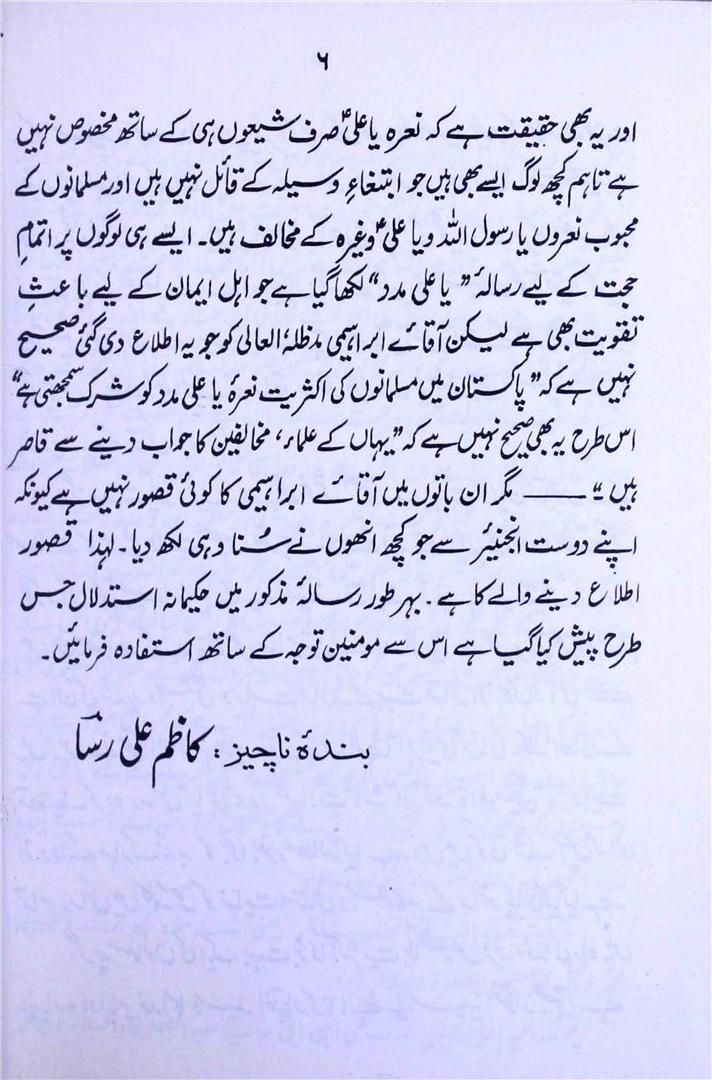 ۶
اور یہ بھی حقیقت ہے کہ نعرہ یا علیؑ صرف شیعوں ہی کے ساتھ مخصوص نہیں
ہے تاہم کچھ لوگ ایسے بھی ہیں جو ابتغاءِ وسیلہ کے قائل نہیں ہیں اور مسلمانوں کے
محبوب نعروں یا رسول اللہ و یا علیؑ وغیرہ کے مخالف ہیں۔ ایسے ہی لوگوں پر اتمامِ
حجت کے لیے رسالۂ ”یا علی مدد“ لکھا گیا ہے جو اہل ایمان کے لیے باعثِ
تقویت بھی ہے لیکن آقائے ابراہیمی مدظلہٗ العالی کو جو یہ اطلاع دی گئی صحیح
نہیں ہے کہ ”پاکستان میں مسلمانوں کی اکثریت نعرۂ یا علی مدد کو شرک سمجھتی ہے“
اس طرح یہ بھی صحیح نہیں ہے کہ ”یہاں کے علماء، مخالفین کا جواب دینے سے قاصر
ہیں“۔ ——— مگر ان باتوں میں آقائے ابراہیمی کا کوئی قصور نہیں ہے کیونکہ
اپنے دوست انجنیئر سے جو کچھ انھوں نے سُنا وہی لکھ دیا۔ لہذا قصور
اطلاع دینے والے کا ہے۔ بہر طور رسالۂ مذکور میں حکیمانہ استدلال جس
طرح پیش کیا گیا ہے اس سے مومنین توجہ کے ساتھ استفادہ فرمائیں۔
بندۂ ناچیز: کاظم علی رساؔ